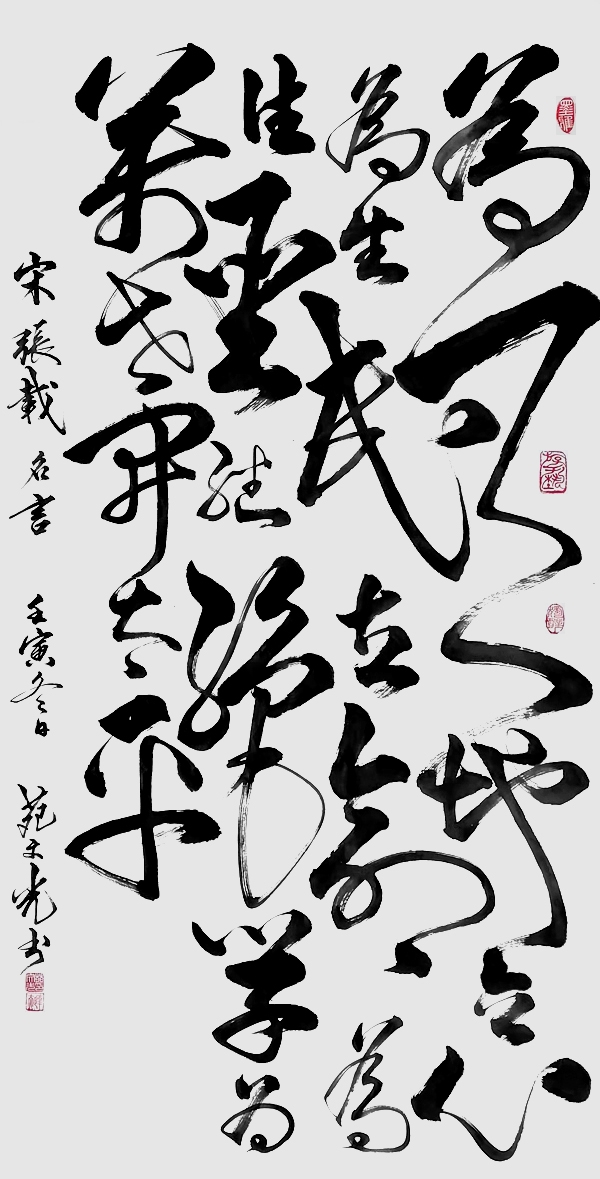 為天地立心
為生民立命為
往聖继絕学为
萬世開太平
宋張載名言 壬寅冬日 苑文光书